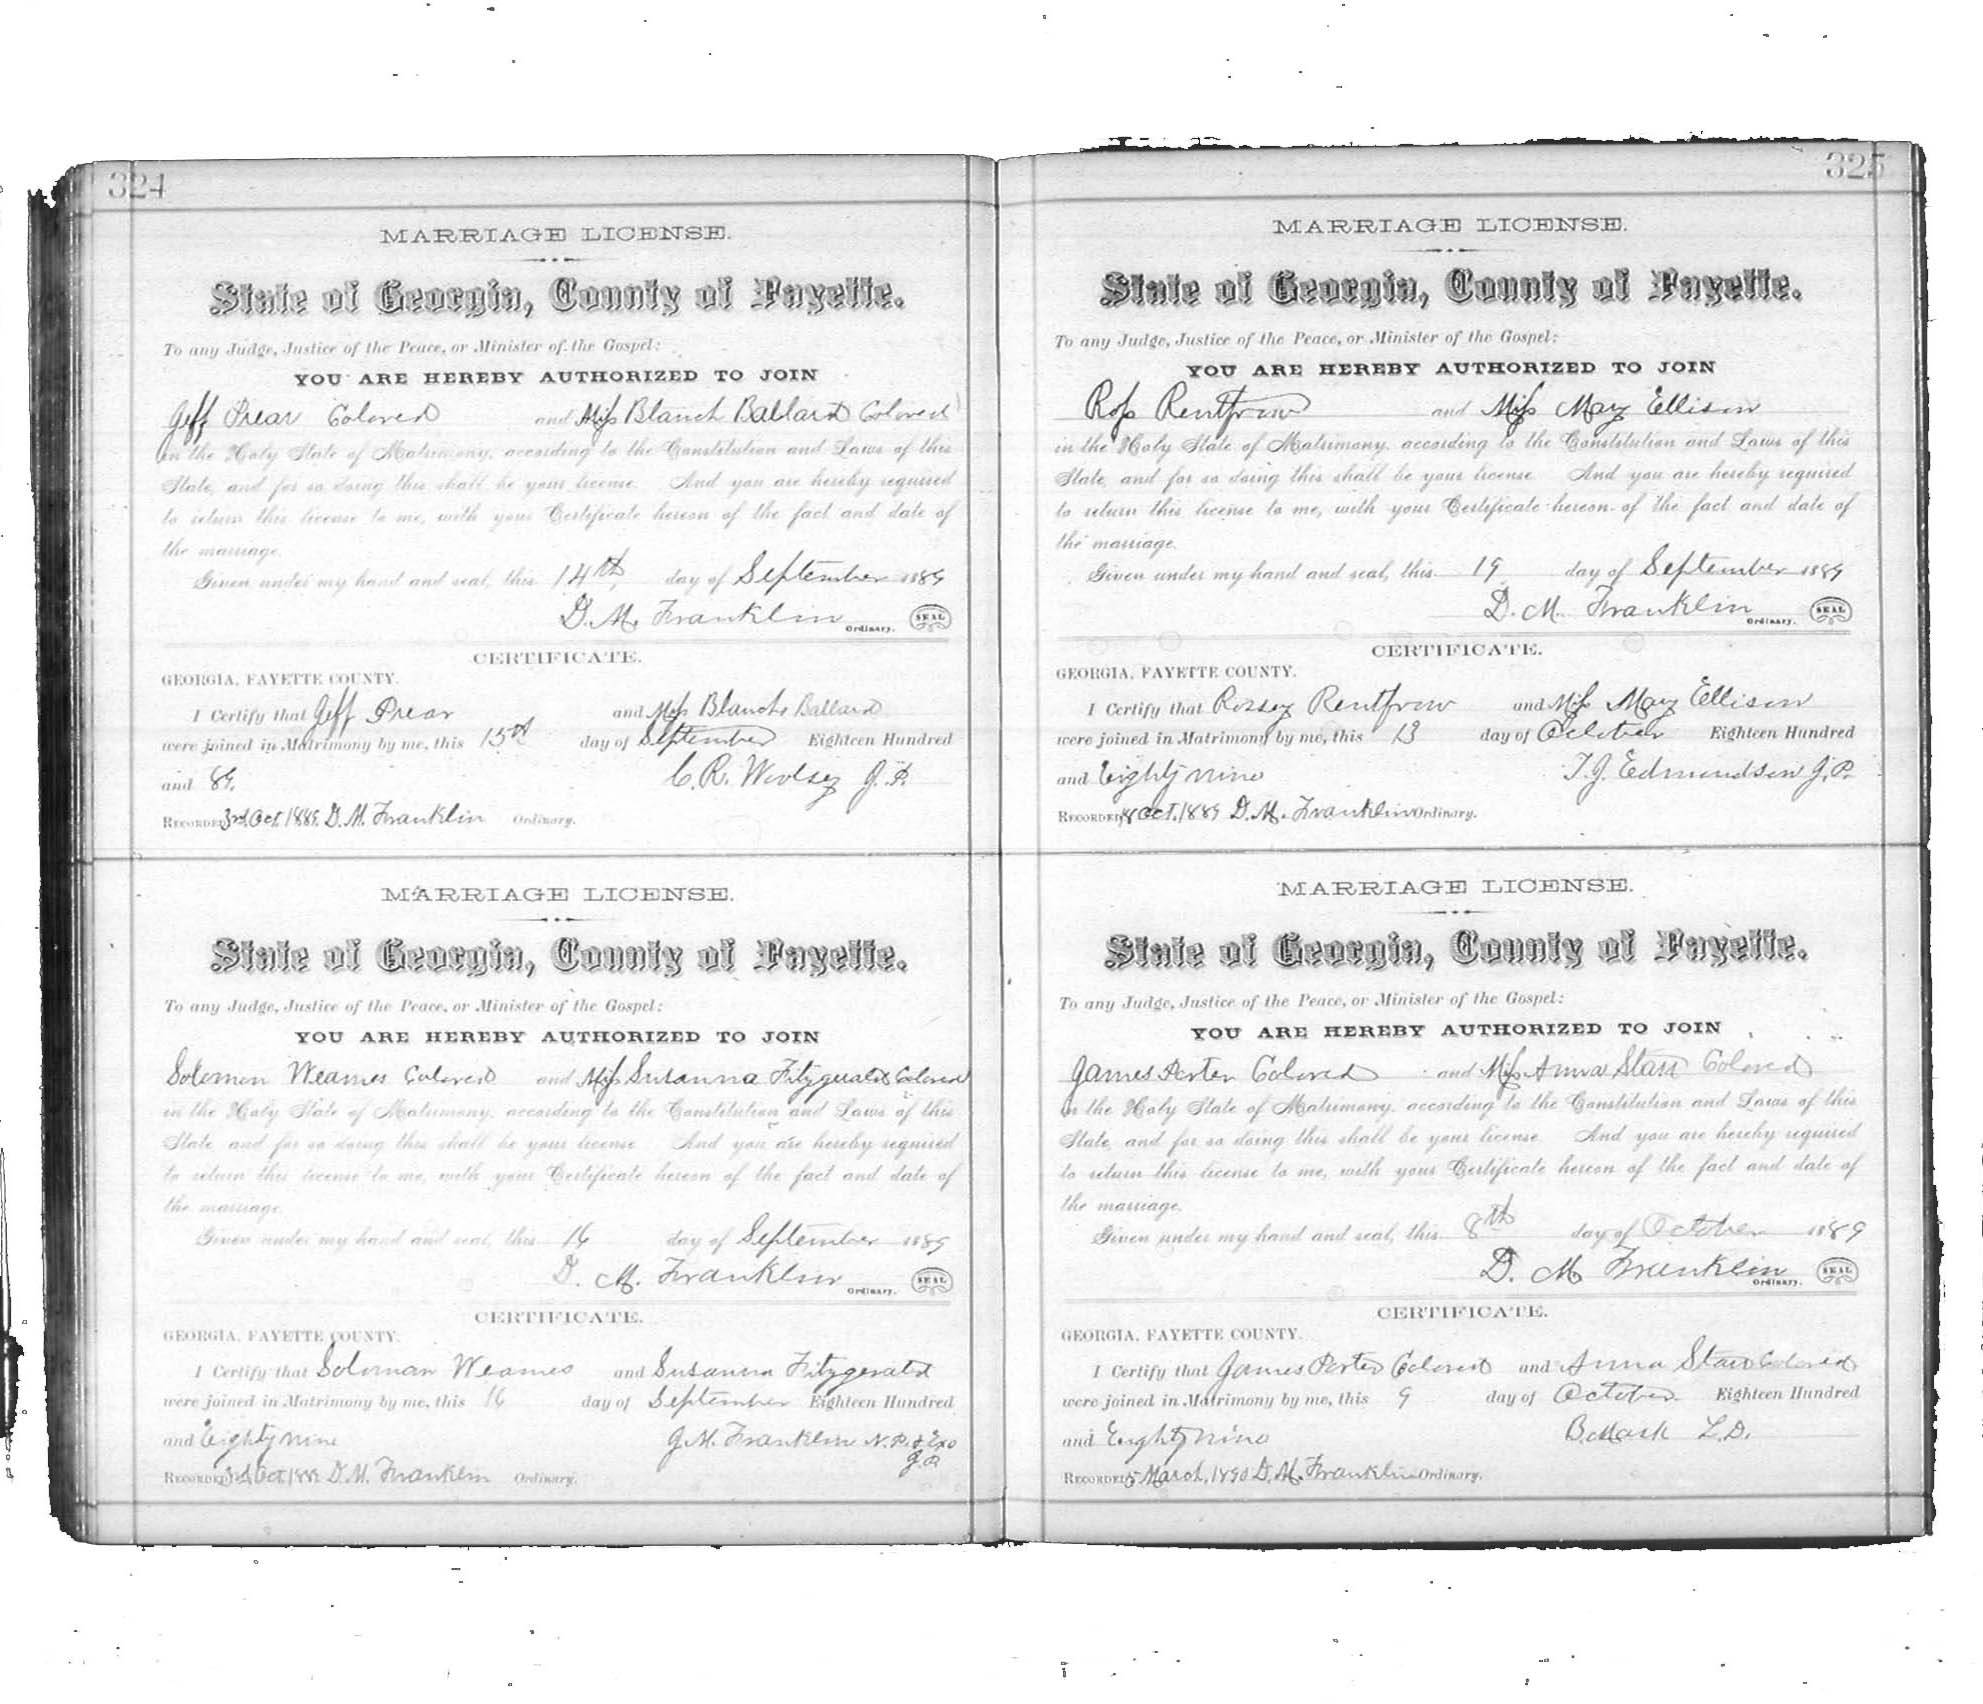 324
MARRIAGE LICENSE.
State of Georgia, County of Fayette.
To any Judge, Justice of the Peace, or Minister of the Gospel:
YOU ARE HEREBY AUTHORIZED TO JOIN
Jeff Prear Colored and Miss Blanch Ballard Colored
in the Holy State of Matrimony, according to the Constitution and Laws of this
State, and for so doing this shall be your license. And you are hereby required
to return this license to me, with your Certificate hereon of the fact and date of
the marriage.
Given under my hand and seal, this 14th day of September 1889
D. M. Franklin Ordinary. SEAL
CERTIFICATE.
GEORGIA, FAYETTE COUNTY.
I Certify that Jeff Prear and Miss Blanch Ballard
were joined in Matrimony by me, this 15th day of September Eighteen Hundred
and 89. C. R. Woolsey J. P.
RECORDED 3rd Oct. 1889. D. M. Franklin Ordinary.
MARRIAGE LICENSE.
State of Georgia, County of Fayette.
To any Judge, Justice of the Peace, or Minister of the Gospel:
YOU ARE HEREBY AUTHORIZED TO JOIN
Solomon Weames Colored and Miss Susanna Fitzgerald Colored
in the Holy State of Matrimony, according to the Constitution and Laws of this
State, and for so doing this shall be your license. And you are hereby required
to return this license to me, with your Certificate hereon of the fact and date of
the marriage.
Given under my hand and seal, this 16 day of September 1889
D. M. Franklin Ordinary. SEAL
CERTIFICATE.
GEORGIA, FAYETTE COUNTY.
I Certify that Soloman Weames and Susanna Fitzgerald
were joined in Matrimony by me, this 16 day of September Eighteen Hundred
and Eighty nine J. M. Franklin N. P. & Exo
J. P.
RECORDED 3rd Oct. 1889 D. M. Franklin Ordinary.
325
MARRIAGE LICENSE.
State of Georgia, County of Fayette.
To any Judge, Justice of the Peace, or Minister of the Gospel:
YOU ARE HEREBY AUTHORIZED TO JOIN
Ross Rentfrow and Miss May Ellison
in the Holy State of Matrimony, according to the Constitution and Laws of this
State, and for so doing this shall be your license. And you are hereby required
to return this license to me, with your Certificate hereon of the fact and date of
the marriage.
Given under my hand and seal, this 19 day of September 1889
D. M. Franklin Ordinary. SEAL
CERTIFICATE.
GEORGIA, FAYETTE COUNTY.
I Certify that Rossey Rentfrow and Miss May Ellison
were joined in Matrimony by me, this 13 day of October Eighteen Hundred
and Eighty nine T. J. Edmundson J. P.
RECORDED 18 Oct. 1889 D. M. Franklin Ordinary.
MARRIAGE LICENSE.
State of Georgia, County of Fayette.
To any Judge, Justice of the Peace, or Minister of the Gospel:
YOU ARE HEREBY AUTHORIZED TO JOIN
James Porter Colored and Miss Anna Starr Colored
in the Holy State of Matrimony, according to the Constitution and Laws of this
State, and for so doing this shall be your license. And you are hereby required
to return this license to me, with your Certificate hereon of the fact and date of
the marriage.
Given under my hand and seal, this 8th day of October 1889
D. M Franklin Ordinary. SEAL
CERTIFICATE.
GEORGIA, FAYETTE COUNTY.
I Certify that James Porter Colored and Anna Starr Colored
were joined in Matrimony by me, this 9 day of October Eighteen Hundred
and Eighty nine L. D.
RECORDED 5 March, 1890 D. M. Franklin Ordinary.